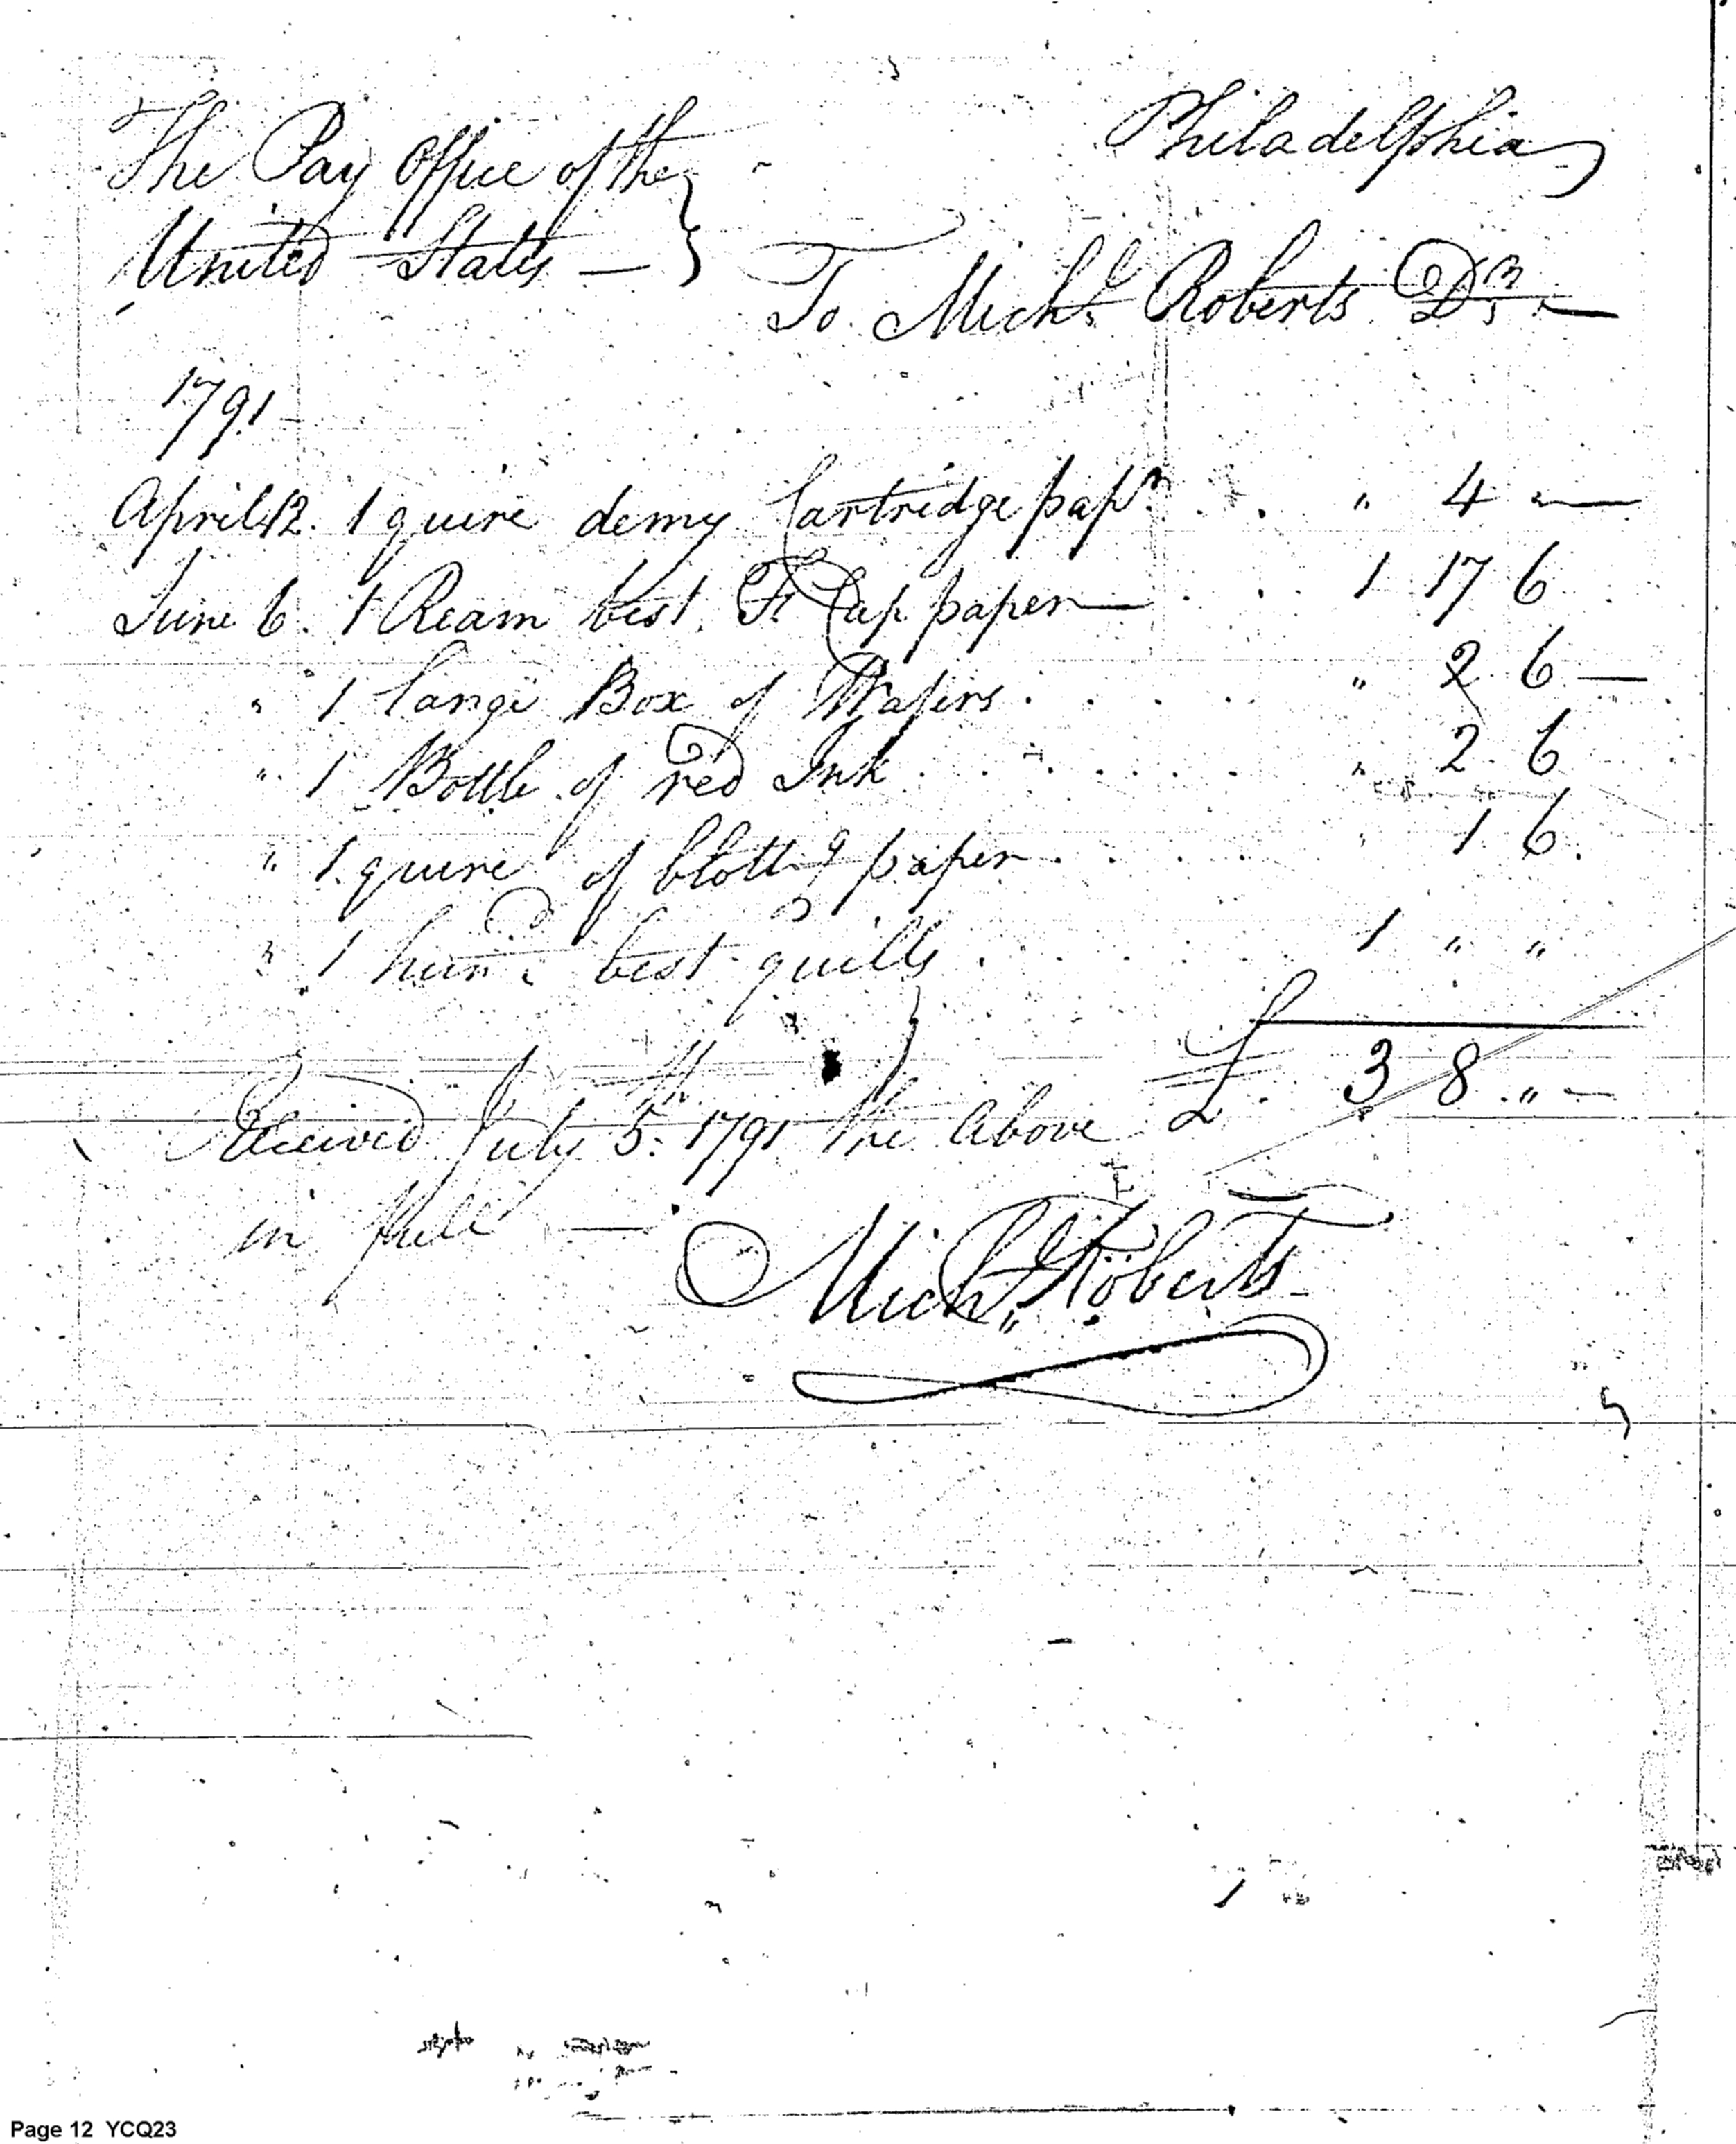 Philadelphia
The Pay Office of the
United States —
To Mich.l Roberts Dr —
1791
April 12. 1 quire demy Cartridge papr. . . " 4 —
June 6. 1 Ream best Fs Cap paper — . . . 1 17 6
" 1 large Box of Wafers . . . . " 2 6 —
" 1 Bottle of red Ink . . . . . . " 2 6
" 1 quire of blottg paper . . . . " 1 6.
" 1 hund best quills . . . . . . 1 " "
£ 3 8 " —
Received July 5th 1791 the above
in full —
Michl Roberts
Page 12 YCQ23